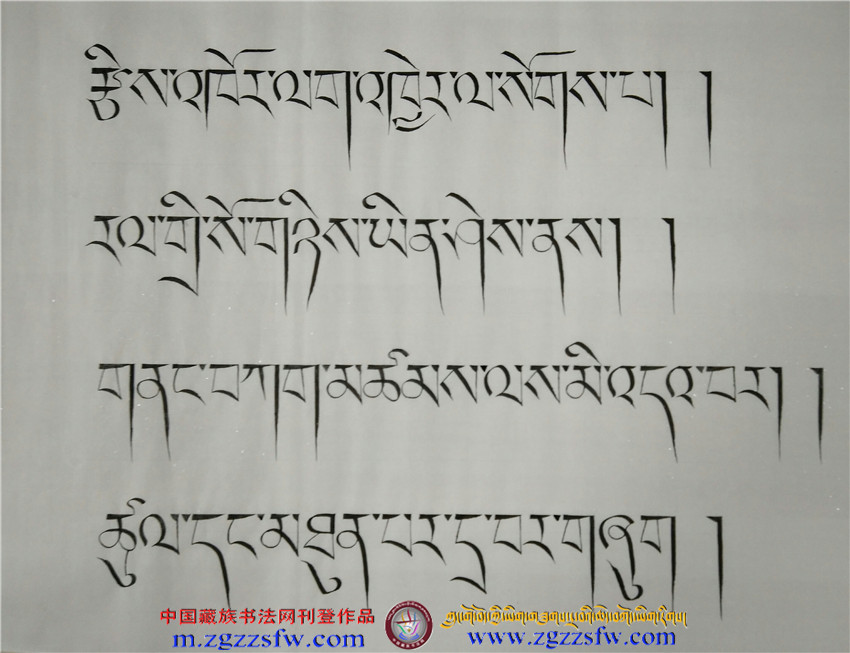 རྩིས་འཁོར་ལག་འཁྱེར་ལ་སོགས་པ། །
རལ་གྲི་སོ་གཉིས་ཡིན་ཤེས་ནས། །
གནང་བཀག་མཚམས་ལས་མི་འདའ་བར། །
ཚུལ་དང་མཐུན་པར་དྲ་བར་གཞུག །
中国藏族书法网刊登作品
m.zgzzsfw.com www.zgzzsfw.com